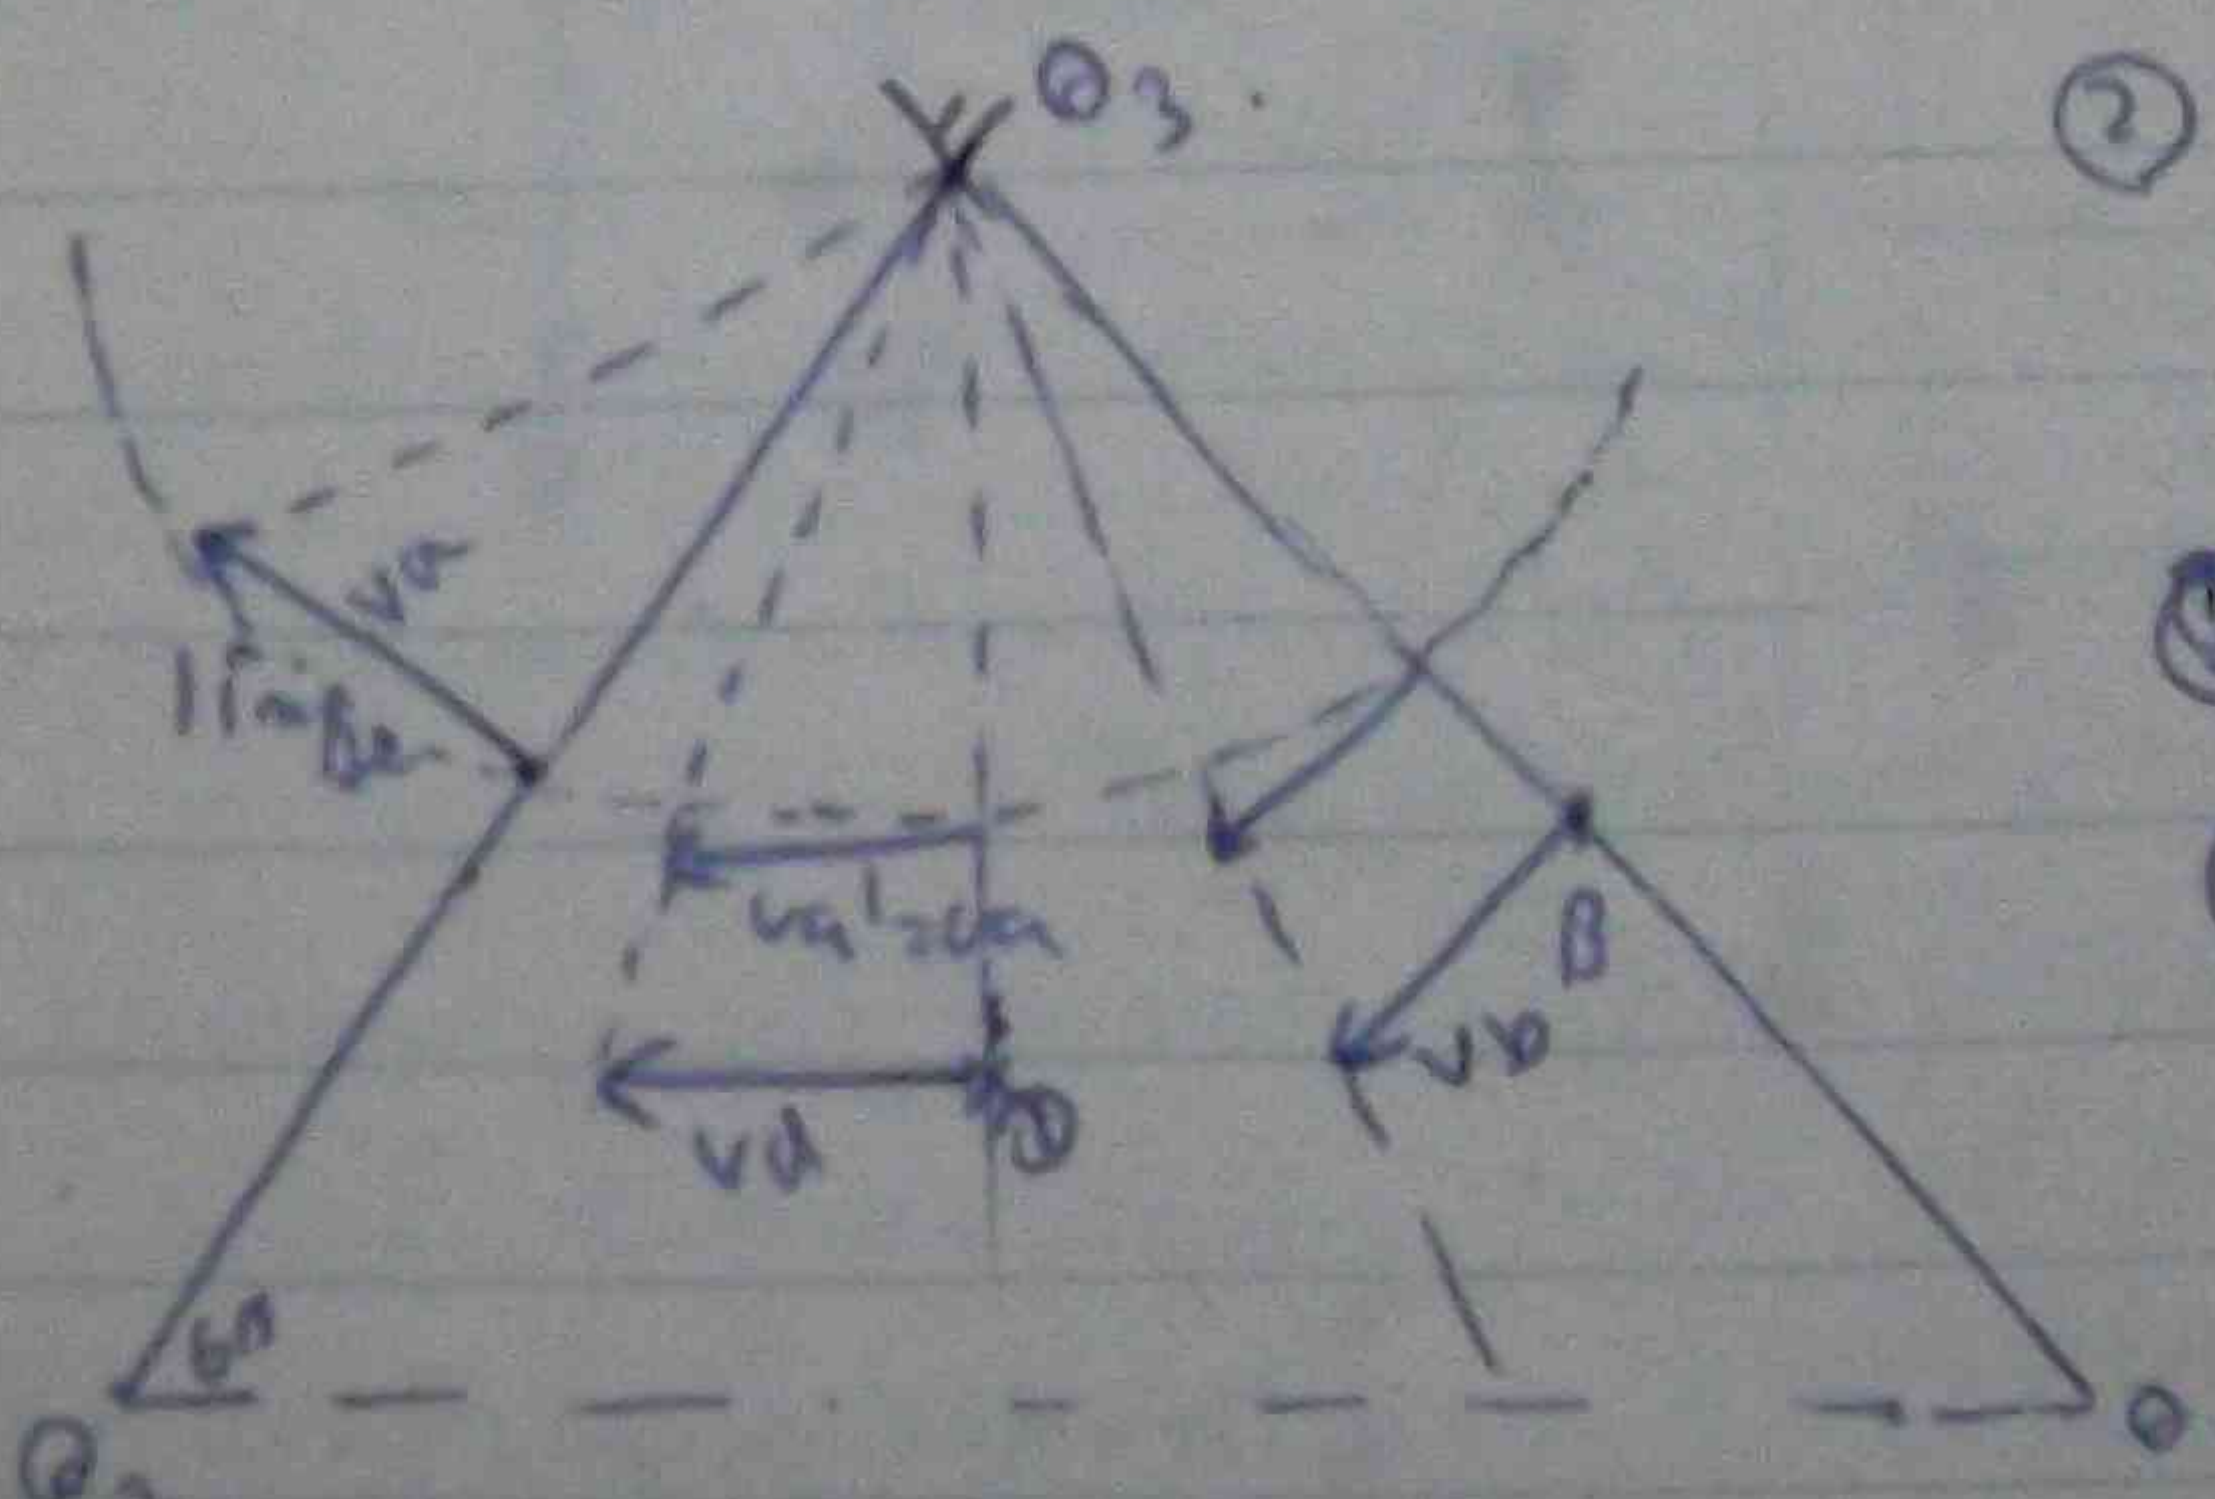 O3.
2
va
linfer
va'=va
B
vb
vd
D
60
O2
O